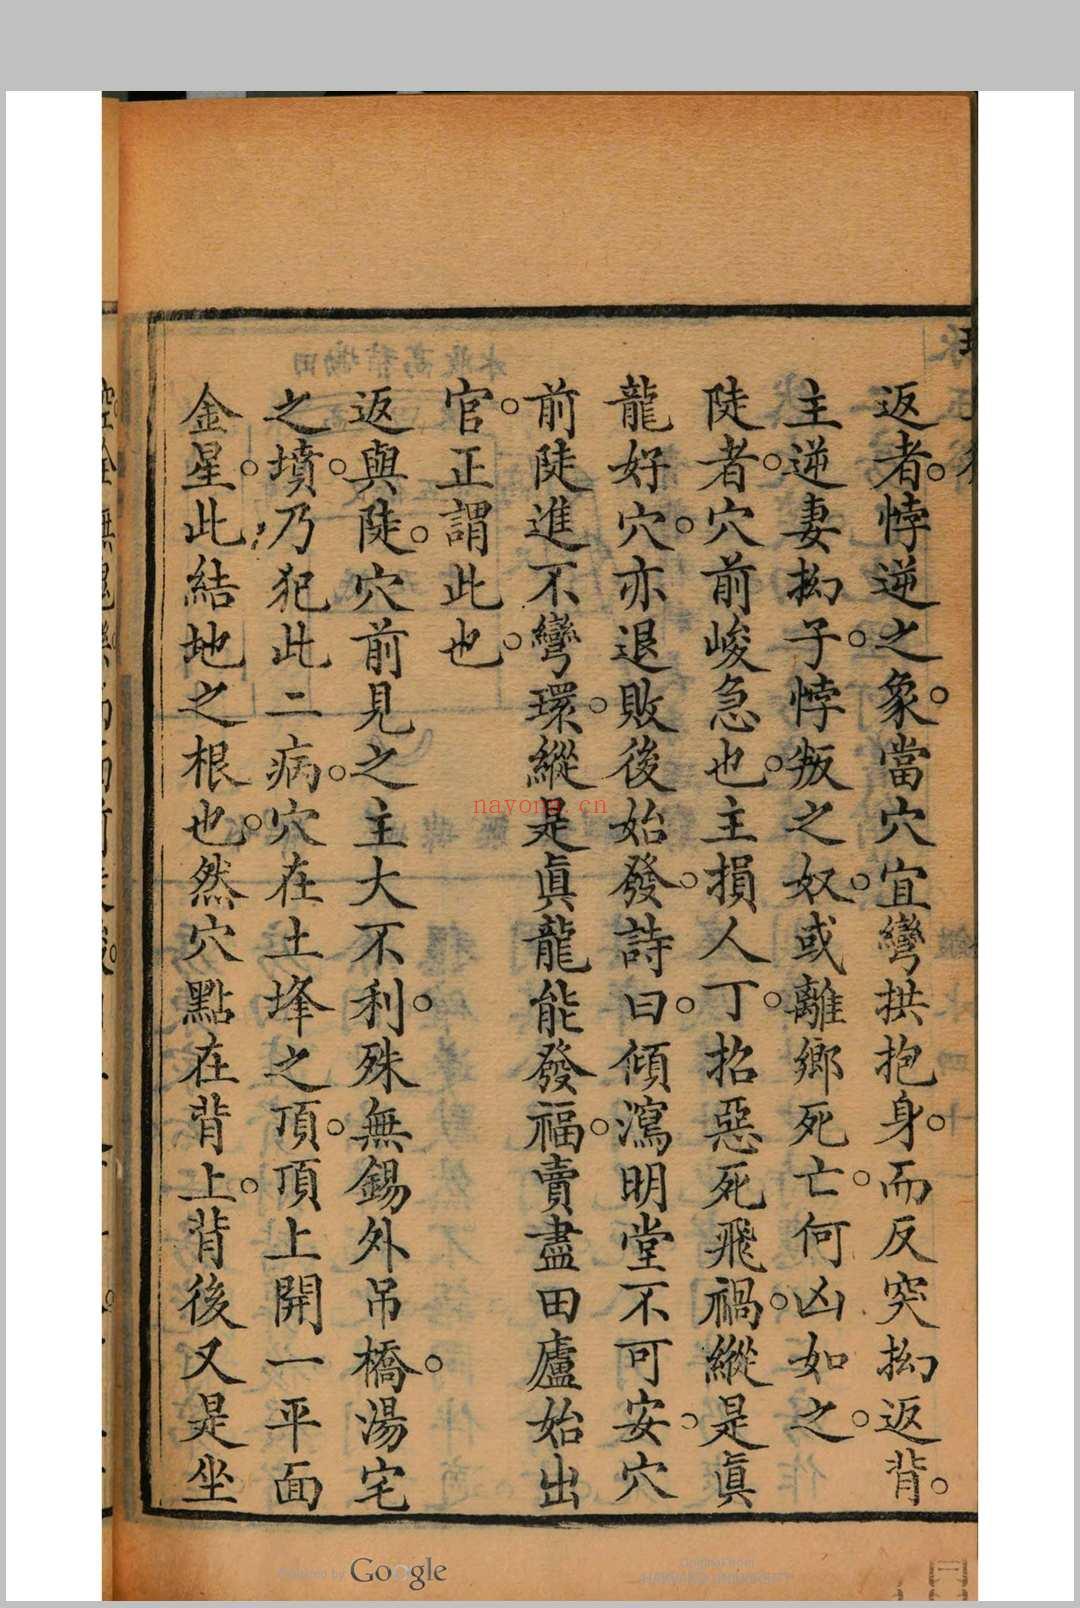 返者。悖逆之象。當穴宜彎拱抱身。而反突拗返背。
主逆妻拗子。悖叛之奴。或離鄉死亡。何凶如之。
陡者。穴前峻急也。主損人丁。招惡死飛禍。縱是眞
龍好穴。亦退敗後始發。詩曰。傾瀉明堂不可安。穴
前陡進不彎環。縱是眞龍能發福。賣盡田廬始出
官。正謂此也。
返與陡。穴前見之主大不利。殊無錫外吊橋。湯宅
之墳。乃犯此二病。穴在土埄之頂。頂上開一平面
金星。此結地之根也。然穴點在背上。背後又是坐
nayong.cn
Powered by Google
Original from
HARVARD UNIVERSITY